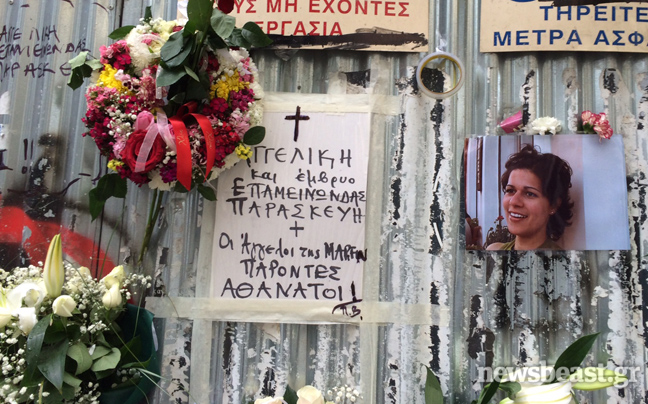 ΥΣ ΜΗ ΕΧΟΝΤΕΣ
ΕΡΓΑΣΙΑ
ΤΗΡΕΙΤΕ
ΜΕΤΡΑ ΑΣΦ
ΓΓΕΛΙΚΗ
και έμβρυο
ΕΠΑΜΕΙΝΩΝΔΑΣ
ΠΑΡΑΣΚΕΥΗ
+
Οι Άγγελοι της MARFIN
ΠΑΡΟΝΤΕΣ
ΑΘΑΝΑΤΟΙ!
Π.Β.
newsbeast.gr